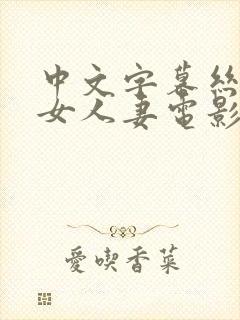 中文字幕絲
女人妻電影
愛喫香菜